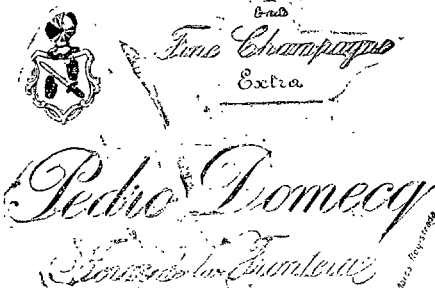 Fine Champagne
Extra
Pedro Domecq
Jerez de la Frontera
Marca Registrada